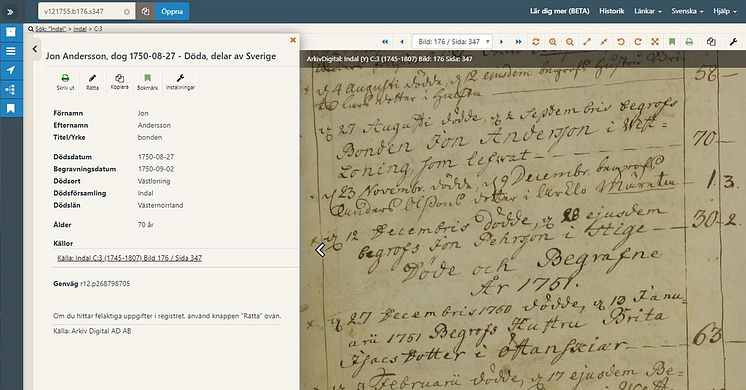 v121755.b176.s347
Öppna
Lär dig mer (BETA)
Historik
Länkar
Svenska
Hjälp
Sök: "Indal" > Indal > C:3
Jon Andersson, dog 1750-08-27 - Döda, delar av Sverige
Skriv ut
Rätta
Kopiera
Bokmärk
Inställningar
Förnamn Jon
Efternamn Andersson
Titel/Yrke bonden
Dödsdatum 1750-08-27
Begravningsdatum 1750-09-02
Dödsort Västloning
Dödsförsamling Indal
Dödslän Västernorrland
Ålder 70 år
Källor
Källa: Indal C:3 (1745-1807) Bild 176 / Sida 347
Genväg r12.p268798705
Om du hittar felaktiga uppgifter i registret, använd knappen "Rätta" ovan.
Källa: Arkiv Digital AD AB
Bild: 176 / Sida: 347
ArkivDigital: Indal (Y) C:3 (1745-1807) Bild: 176 Sida: 347
4 augusti dödde, 12 ejusdem begrofs hustru 56
27 Augusti dödde, 2 Septembris begrofs
Bonden Jon Anderson i West-
Loning som lefwat 70
23 Novembr. dödde, 9 Decembr. begrofs
dotter i 1. 3.
12 Decembris dödde, ejusdem
begrofs Jon Pehrson i Stige 30 - 2.
Döde och Begrafne
År 1751.
27 Decembris 1750 dödde, 13 Janu-
arii 1751 Begrofs Hustru Brita
Isacs Dotter i 63
3 Februarii dödde, 17 ejusdem Be-